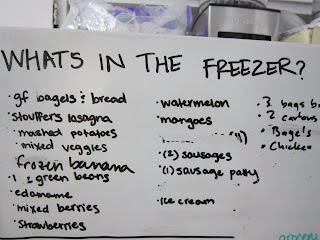 WHAT'S IN THE FREEZER?
• gf bagels & bread
stouffers lasagna
• mashed potatoes
• mixed veggies
frozen banana
green beans
• edamame
• mixed berries
• Strawberries
• watermelon
• mangoes
• (2) sausages
• (1) sausage patty
• ice cream
• 3 bags
• 2 cartons
• Bagels
• Chicken